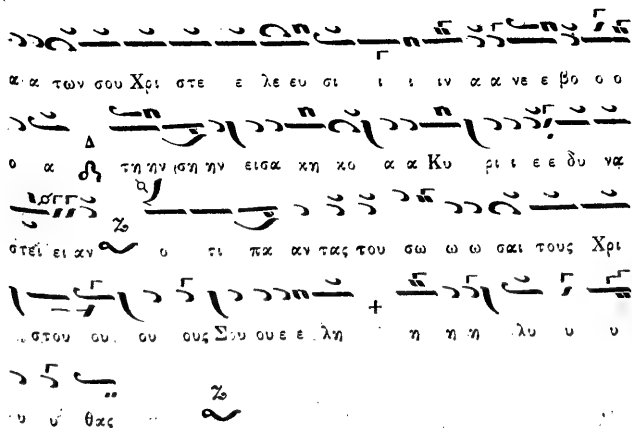 α α των σου Χρι στε ε λε ευ σι ι ι ιν α α νε ε βο ο ο
ο α Δ τη ην ιση ην εισα κη κο α α Κυ ρι ι ε ε δυ να
στει ει αν ο τι πα αν τας του σω ω ω σαι τους Χρι
στου ου ου ους Σου ου ε ε λη η η η λυ υ υ
υ υ θας